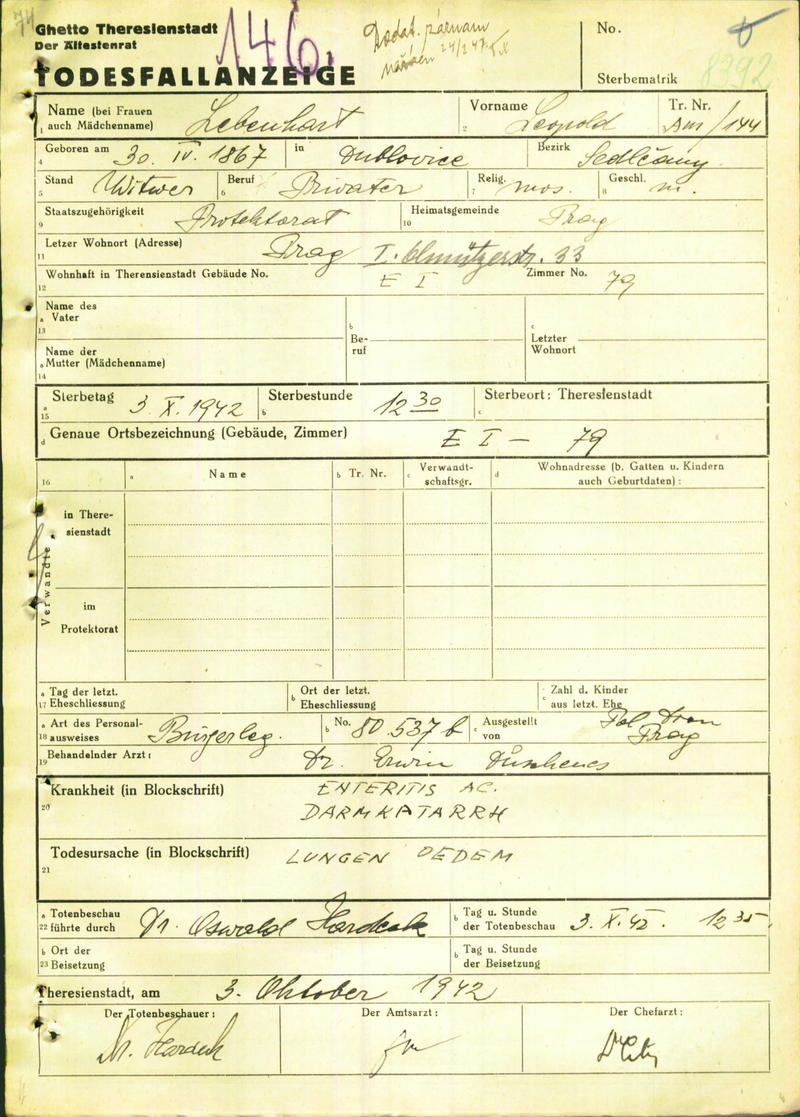 Ghetto Theresienstadt
Der Ältestenrat
TODESFALLANZEIGE
146.
No.
Sterbematrik 8392
Name (bei Frauen auch Mädchenname) Lebenhart
Vorname Leopold
Tr. Nr. /144
1
2
Geboren am 30. IV. 1867
in Dublovice
Bezirk Sedlčany
4
Stand Witwer
Beruf Privater
Relig. mos.
Geschl. m.
5
6
7
8
Staatszugehörigkeit Protektorat
Heimatsgemeinde Prag
9
10
Letzer Wohnort (Adresse) Prag I. Olmützerstr. 33
11
Wohnhaft in Therensienstadt Gebäude No. E I
Zimmer No. 79
12
Name des Vater
a
13
b
Beruf
c
Letzter Wohnort
Name der Mutter (Mädchenname)
a
14
Sterbetag 3. X. 1942
Sterbestunde 12 30
Sterbeort: Theresienstadt
a
15
b
c
d Genaue Ortsbezeichnung (Gebäude, Zimmer) E I – 79
16
a Name
b Tr. Nr.
c Verwandtschaftsgr.
d Wohnadresse (b. Gatten u. Kindern auch Geburtdaten):
Verwandte
in Theresienstadt
im Protektorat
a Tag der letzt.
17 Eheschliessung
b Ort der letzt. Eheschliessung
c Zahl d. Kinder aus letzt. Ehe
a Art des Personal-
18 ausweises Bürgerleg.
b No. 80.537 b
c Ausgestellt von Pol. Prag
19 Behandelnder Arzt: Dr. Erwin
Krankheit (in Blockschrift) ENTERITIS AC.
20
DARMKATARRH
Todesursache (in Blockschrift) LUNGEN OEDEM
21
a Totenbeschau
22 führte durch Dr. Oswald
b Tag u. Stunde der Totenbeschau 3. X. 42. 12 35.
b Ort der
23 Beisetzung
b Tag u. Stunde der Beisetzung
Theresienstadt, am 3. Oktober 1942
Der Totenbeschauer:
Der Amtsarzt:
Der Chefarzt: